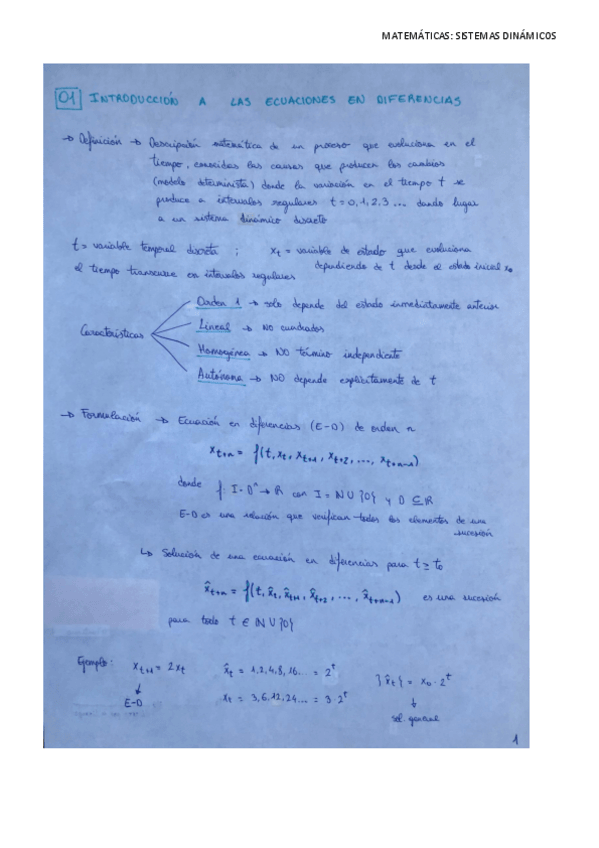 MATEMÁTICAS: SISTEMAS DINÁMICOS
01 INTRODUCCIÓN A LAS ECUACIONES EN DIFERENCIAS
→ Definición → Descripción matemática de un proceso que evoluciona en el
tiempo, conocidas las causas que producen los cambios
(modelo determinista) donde la variación en el tiempo t se
produce a intervalos regulares t = 0, 1, 2, 3 ... dando lugar
a un sistema dinámico discreto
t = variable temporal discreta ; xₜ = variable de estado que evoluciona
el tiempo transcurre en intervalos regulares dependiendo de t desde el estado inicial x₀
Características
Orden 1 → solo depende del estado inmediatamente anterior
Lineal → NO cuadrados
Homogénea → NO término independiente
Autónoma → NO depende explícitamente de t
→ Formulación → Ecuación en diferencias (E-D) de orden n
xₜ₊ₙ = f(t, xₜ, xₜ₊₁, xₜ₊₂, ..., xₜ₊ₙ₋₁)
donde f: I · Dⁿ → ℝ con I = ℕ ∪ {0} y D ⊆ ℝ
E-D es una relación que verifican todos los elementos de una
sucesión
↳ Solución de una ecuación en diferencias para t ≥ t₀
x̂ₜ₊ₙ = f(t, x̂ₜ, x̂ₜ₊₁, x̂ₜ₊₂, ..., x̂ₜ₊ₙ₋₁) es una sucesión
para todo t ∈ ℕ ∪ {0}
Ejemplo: xₜ₊₁ = 2xₜ x̂ₜ = 1, 2, 4, 8, 16 ... = 2ᵗ {x̂ₜ} = x₀ · 2ᵗ
↓ E-D xₜ = 3, 6, 12, 24 ... = 3 · 2ᵗ ↓ sol. general
1